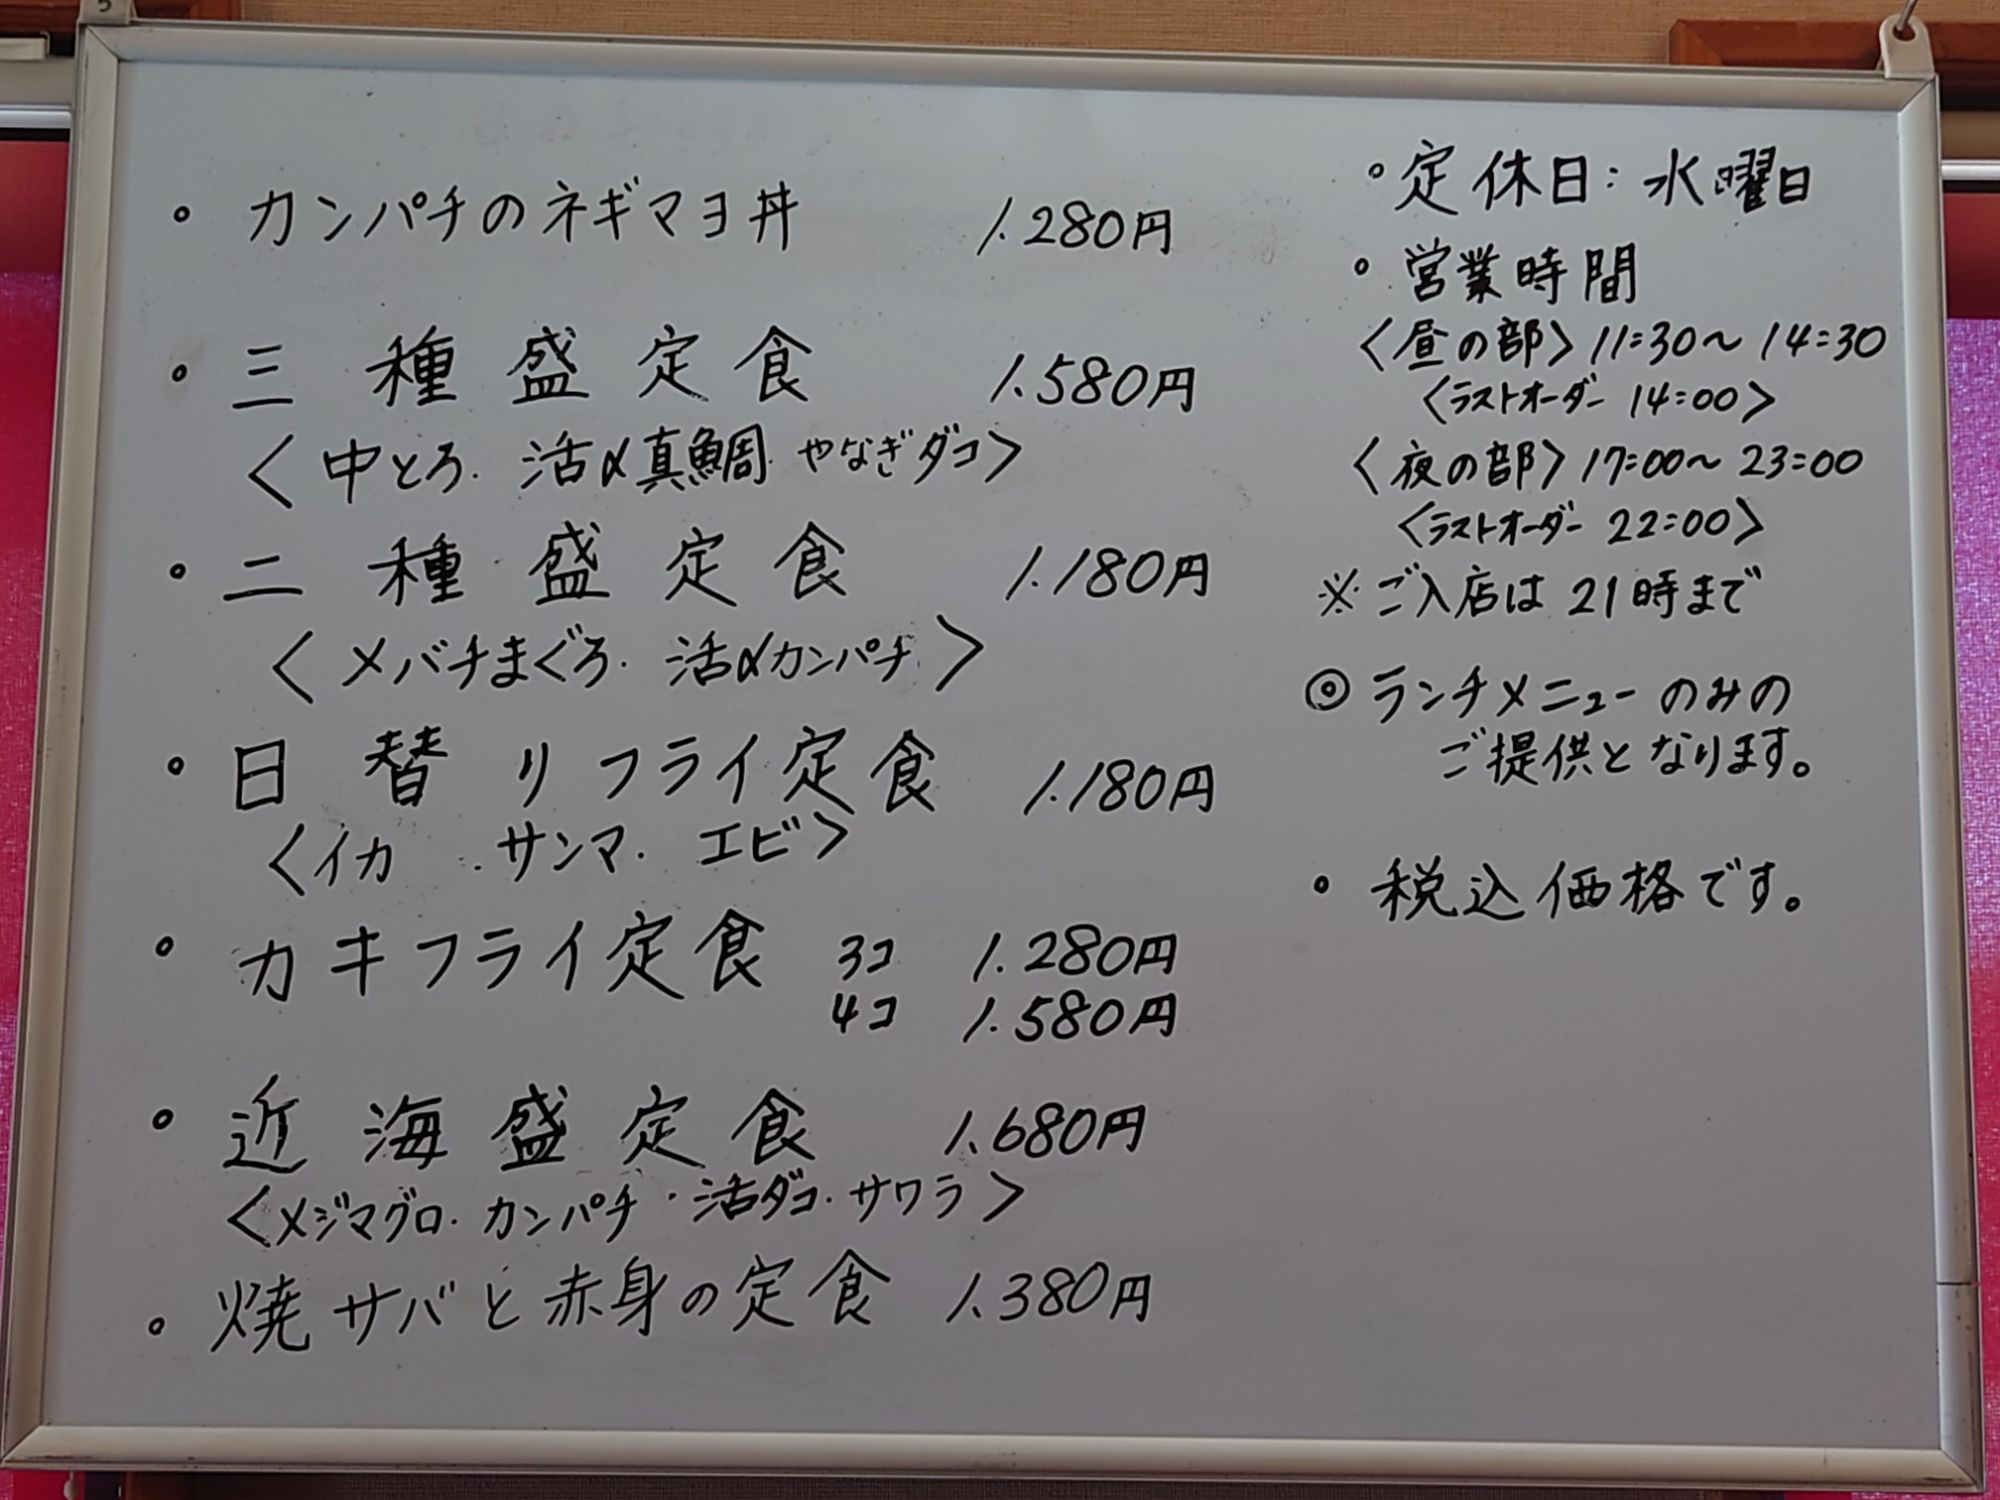 • カンパチのネギマヨ丼 1.280円
• 三種盛定食 1.580円
〈中とろ. 活〆真鯛. やなぎダコ〉
• 二種盛定食 1.180円
〈メバチまぐろ. 活〆カンパチ.〉
• 日替りフライ定食 1.180円
〈イカ . サンマ. エビ〉
• カキフライ定食 3コ 1.280円
4コ 1.580円
• 近海盛定食 1.680円
〈メジマグロ. カンパチ・活ダコ. サワラ〉
• 焼サバと赤身の定食 1.380円
• 定休日: 水曜日
• 営業時間
〈昼の部〉11:30〜14:30
〈ラストオーダー 14:00〉
〈夜の部〉17:00〜23:00
〈ラストオーダー 22:00〉
※ご入店は21時まで
◎ランチメニューのみの
ご提供となります。
• 税込価格です。